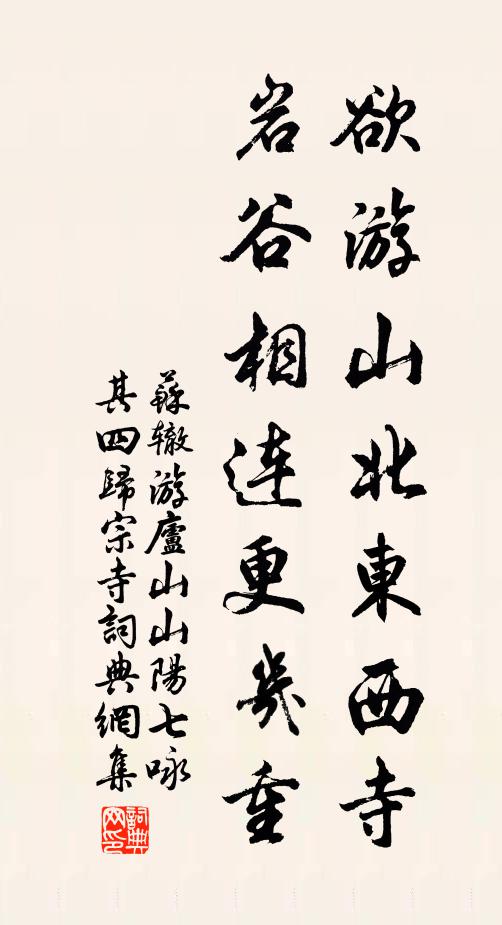 欲游山北東西寺
岩谷相连更幾重
蘇辙游廬山山陽七咏
其四歸宗寺詞典網集
詞典
网印